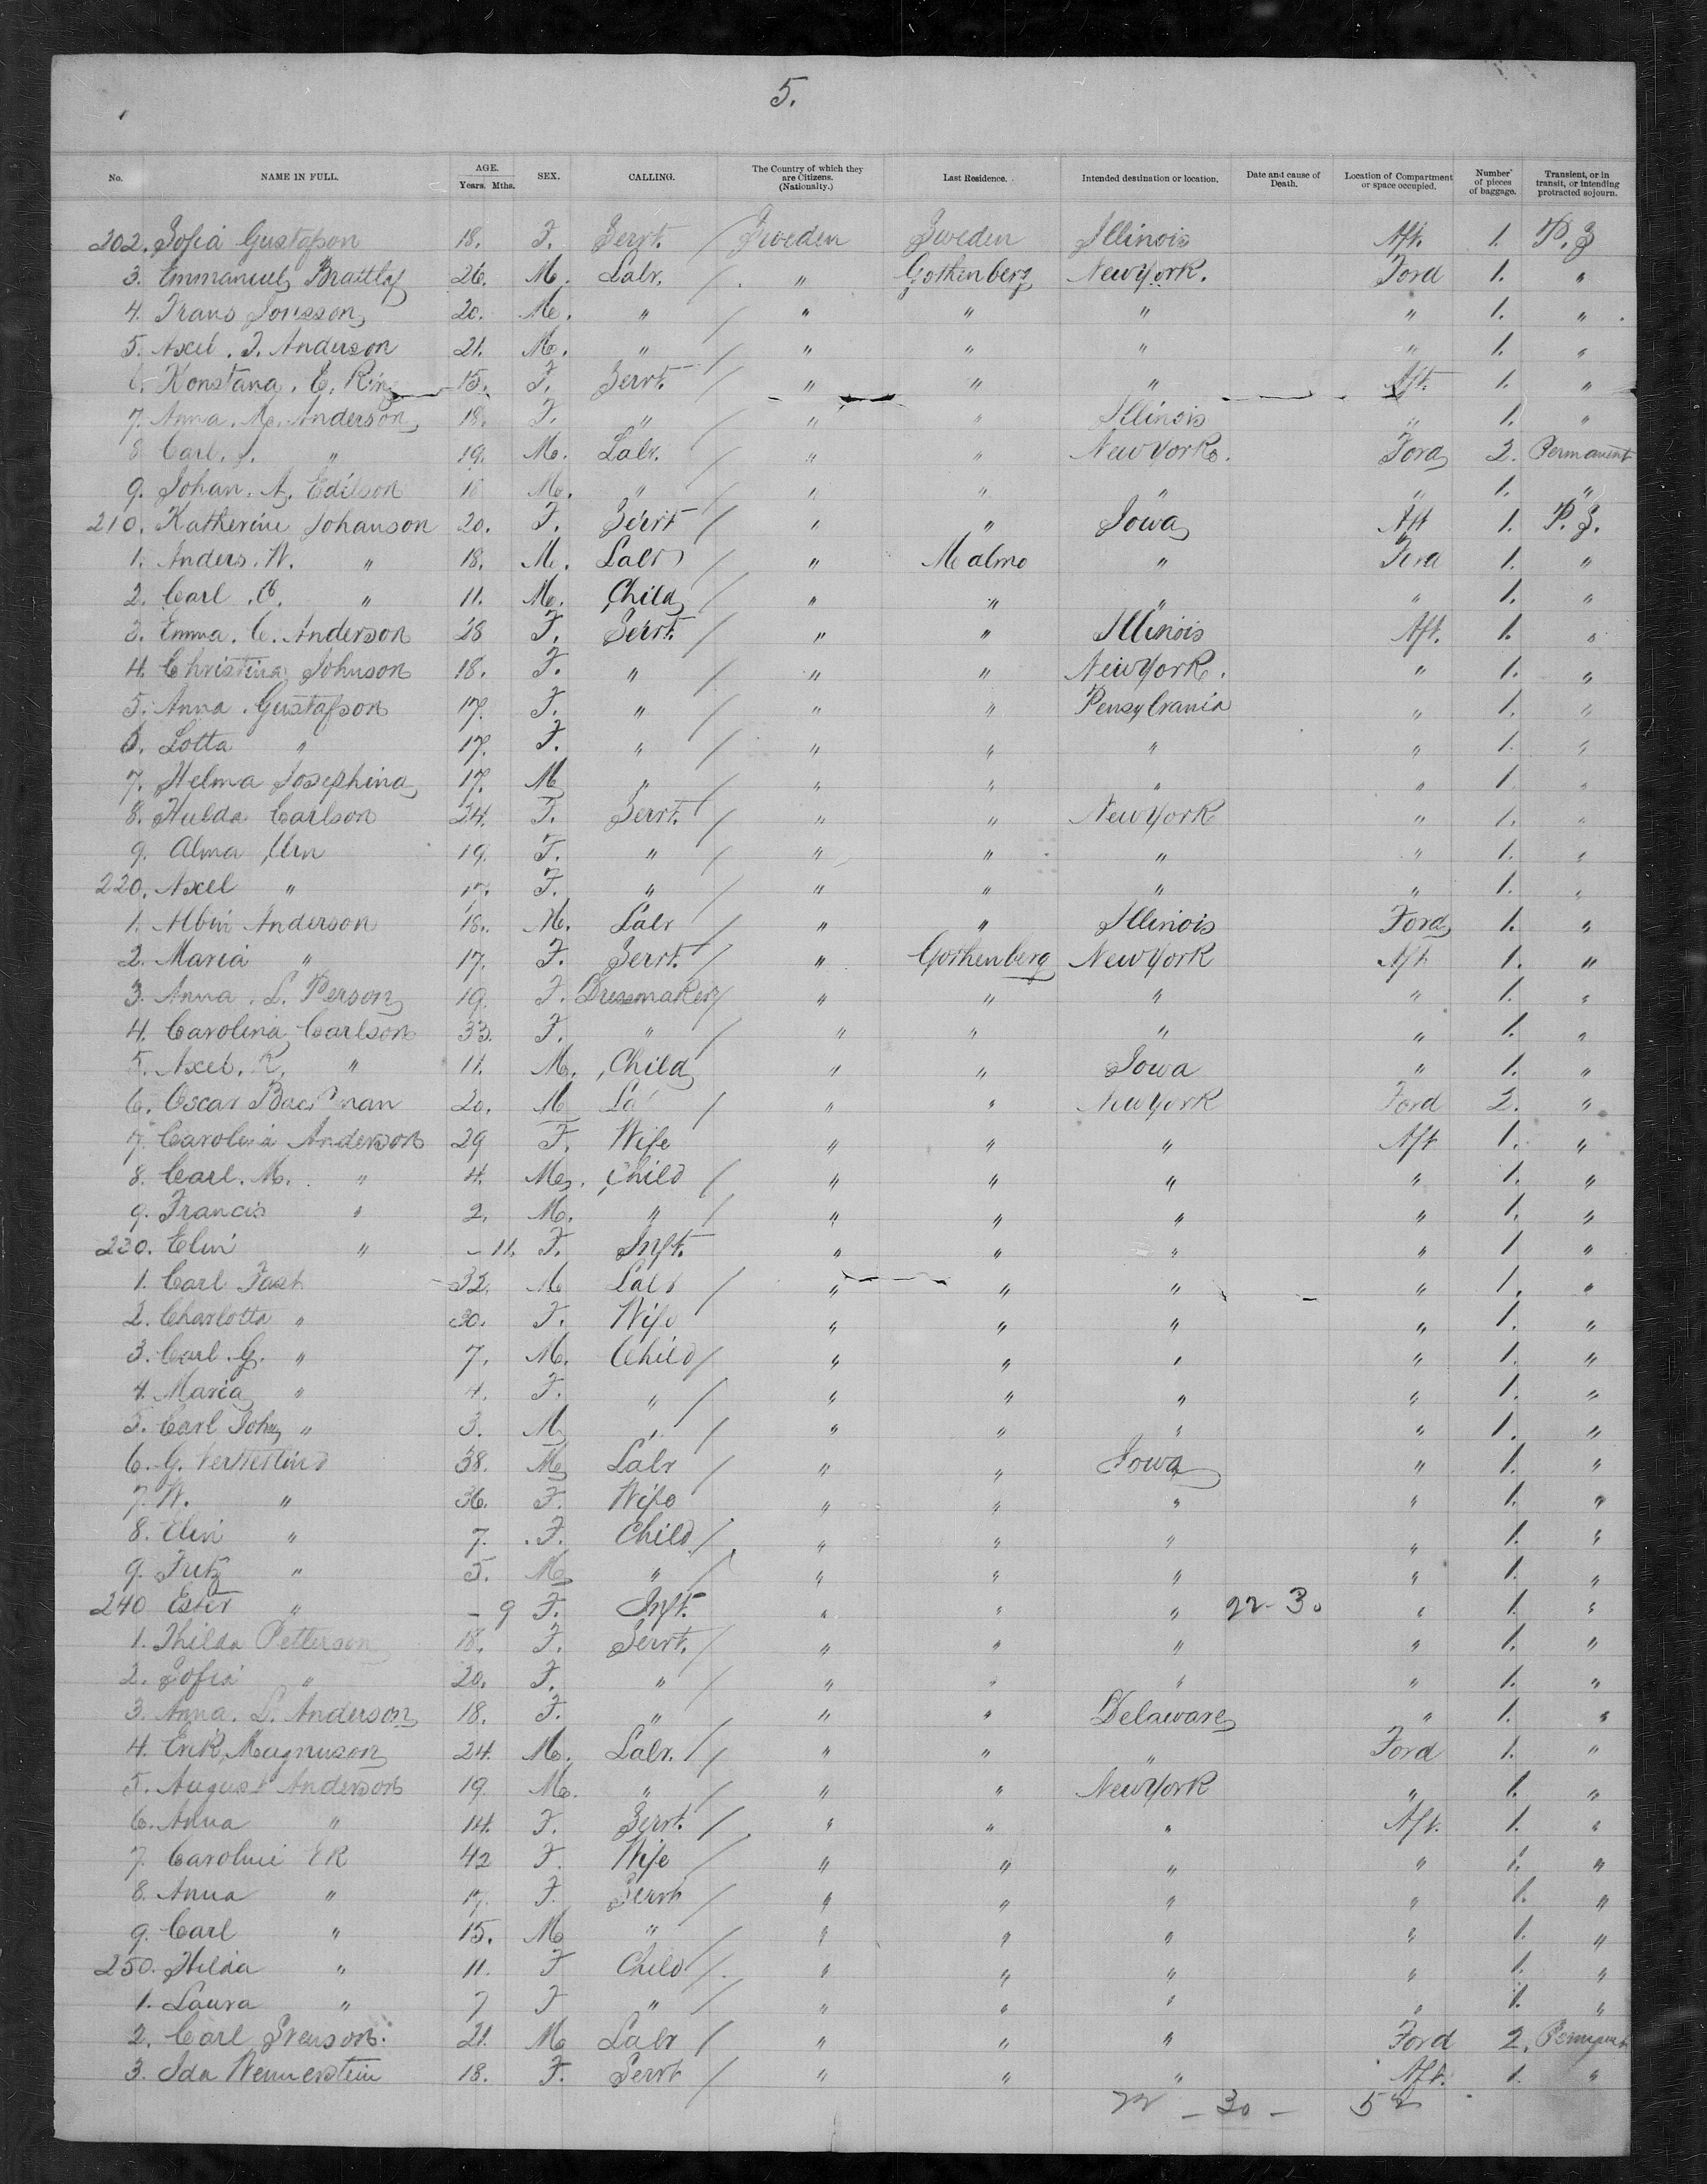 5.
No. NAME IN FULL. AGE. Years. Mths. SEX. CALLING. The Country of which they are Citizens. (Nationality.) Last Residence. Intended destination or location. Date and cause of Death. Location of Compartment or space occupied. Number of pieces of baggage. Transient, or in transit, or intending protracted sojourn.
202. Sofia Gustafson 18. F. Servt. / Sweden Sweden Illinois Aft. 1. P. S
3. Emmanuel 26. M. Labr. / " Gothenberg New York. Ford 1. "
4. Frans Jonsson 20. M. " / " " " " 1. "
5. Axel. F. Anderson 21. M. " / " " " " 1. "
6. Konstana. E. Ring 15. F. Servt. / " " " Aft. 1. "
7. Anna. M. Anderson 18. F. " / " " Illinois " 1. "
8 Carl. J. " 19. M. Labr. / " " New York. Ford 2. Permanent
9. Johan. A. Edilson M. " / " " " " 1. "
210. Katherine Johanson 20. F. Servt / " " Iowa Aft 1. P. S.
1. Anders. W. " 18. M. Labr / " Malmo " Ford 1. "
2. Carl. O. " 11. M. Child / " " " " 1. "
3. Emma. C. Anderson 28 F. Servt. / " " Illinois Aft. 1. "
4. Christina Johnson 18. F. " / " " New York. " 1. "
5. Anna. Gustafson 17. F. " / " " Pensylvania " 1. "
6. Lotta " 17. F. " / " " " " 1. "
7. Helma Josephina 17. M " / " " " " 1. "
8. Hulda Carlson 24. F. Servt. / " " New York " 1. "
9. Alma Urn 19. F. " / " " " " 1. "
220. Axel " 17. F. " / " " " " 1. "
1. Albin Anderson 18. M. Labr / " " Illinois Ford 1. "
2. Maria " 17. F. Servt. / " Gothenberg New York Aft 1. "
3. Anna. L. Person 19. F. Dressmaker / " " " " 1. "
4. Carolina Carlson 33. F. " / " " " " 1. "
5. Axel. R. " 11. M. Child " " Iowa " 1. "
6. Oscar 20. M / " " New York Ford 2. "
7. Carolina Anderson 29 F. Wife " " " Aft 1. "
8. Carl. M. " 4. M. Child / " " " " 1. "
9. Francis " 2. M. " / " " " " 1. "
230. Elin " - 11. F. Inft. " " " " 1 "
1. Carl Fast 32. M Labr / " " " " 1. "
2. Charlotta " 30. F. Wife " " " " 1. "
3. Carl. G. " 7. M. Child / " " " " 1. "
4. Maria " 4. F. " / " " " " 1. "
5. Carl John " 3. M " / " " " " 1. "
6. G. 38. M Labr / " " Iowa " 1. "
7. W. " 36. F. Wife " " " " 1. "
8. Elin " 7. F. Child / " " " " 1. "
9. Fritz " 5. M " / " " " " 1. "
240 Ester " - 9 F. Inft. " " " 22-30 " 1. "
1. Thilda Petterson 18. F. Servt. / " " " " 1. "
2. Sofia " 20. F. " / " " " " 1. "
3. Anna. L. Anderson 18. F. " / " " Delaware " 1. "
4. Erik Magnuson 24. M. Labr. / " " " Ford 1. "
5. August Anderson 19. M. " / " " New York " 1. "
6. Anna " 14. F. Servt. / " " " Aft. 1. "
7. Caroline EK 42 F. Wife / " " " " 1. "
8. Anna " 17. F. Servt / " " " " 1. "
9. Carl " 15. M " / " " " " 1. "
250. Hilda " 11. F Child / " " " " 1. "
1. Laura " 7 F " / " " " " 1. "
2. Carl Svenson. 21. M Labr / " " " Ford 2. Permanent
3. Ida Wennerstein 18. F. Servt / " " " Aft. 1. "
22 - 30 - 52